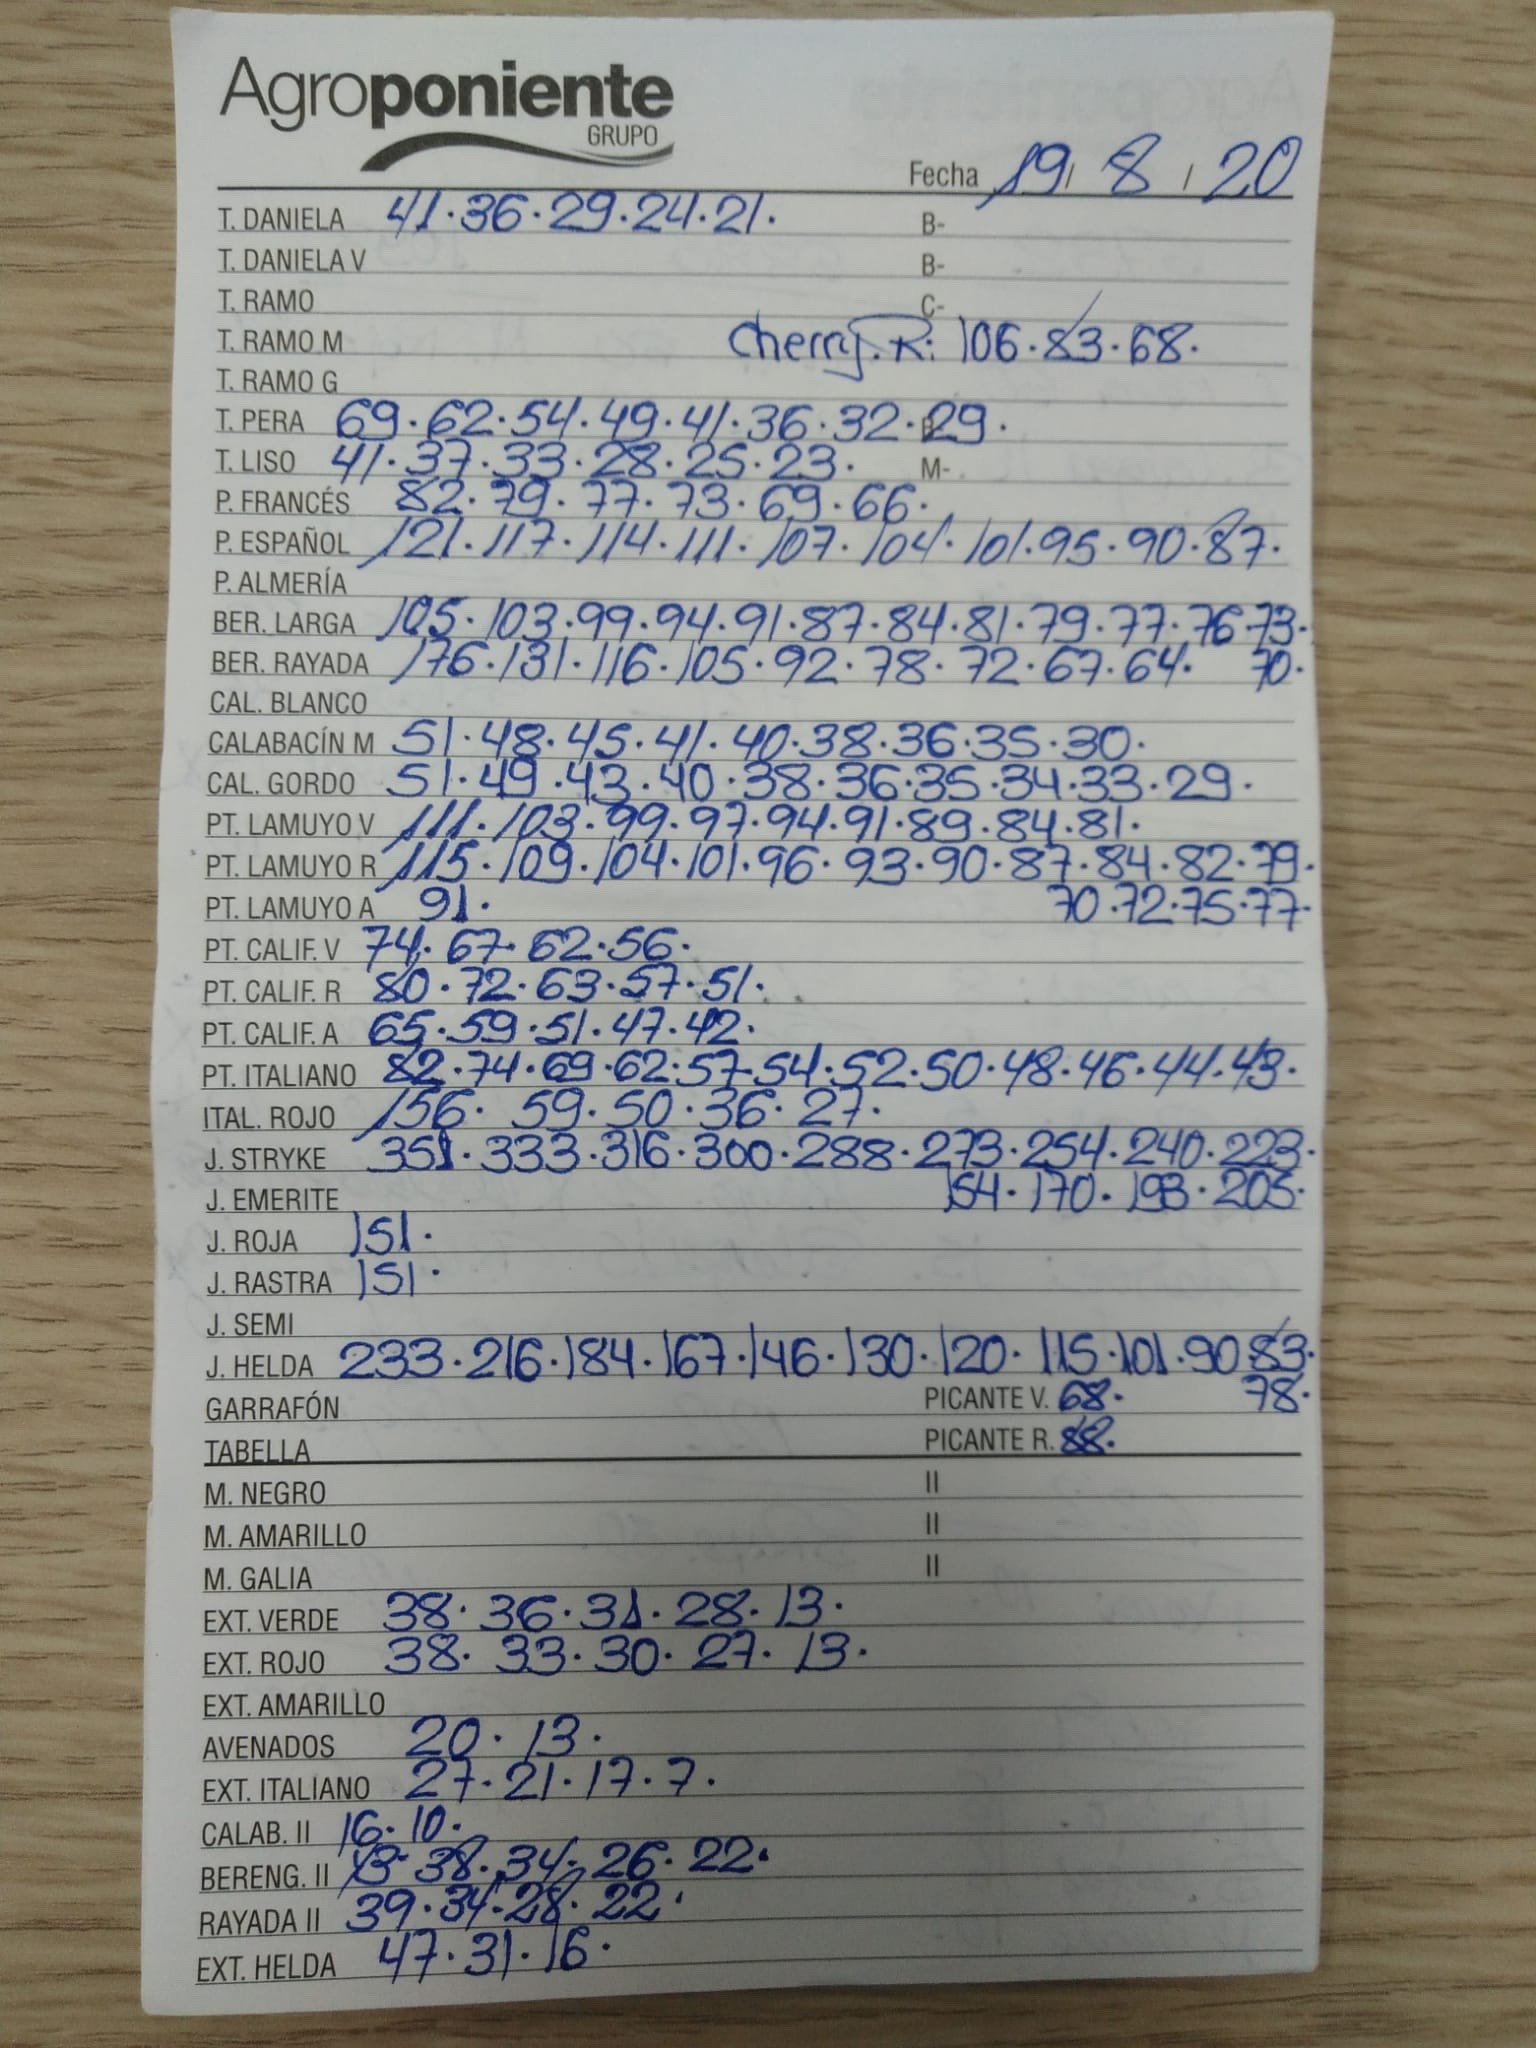 Agroponiente
GRUPO
Fecha 19/ 8 / 20
T. DANIELA 41·36·29·24·21· B-
T. DANIELA V B-
T. RAMO C-
T. RAMO M Cherry.R: 106·83·68·
T. RAMO G
T. PERA 69·62·54·49·41·36·32·29·
T. LISO 41·37·33·28·25·23· M-
P. FRANCÉS 82·79·77·73·69·66·
P. ESPAÑOL 121·117·114·111·107·104·101·95·90·87·
P. ALMERÍA
BER. LARGA 105·103·99·94·91·87·84·81·79·77·76·73·
BER. RAYADA 176·131·116·105·92·78·72·67·64· 70·
CAL. BLANCO
CALABACÍN M 51·48·45·41·40·38·36·35·30·
CAL. GORDO 51·49·43·40·38·36·35·34·33·29·
PT. LAMUYO V 111·103·99·97·94·91·89·84·81·
PT. LAMUYO R 115·109·104·101·96·93·90·87·84·82·79·
PT. LAMUYO A 91· 70·72·75·77·
PT. CALIF. V 74·67·62·56·
PT. CALIF. R 80·72·63·57·51·
PT. CALIF. A 65·59·51·47·42·
PT. ITALIANO 82·74·69·62·57·54·52·50·48·46·44·43·
ITAL. ROJO 156·59·50·36·27·
J. STRYKE 351·333·316·300·288·273·254·240·223·
J. EMERITE 154·170·193·205·
J. ROJA 151·
J. RASTRA 151·
J. SEMI
J. HELDA 233·216·184·167·146·130·120·115·101·90 83·
GARRAFÓN PICANTE V. 68· 78·
TABELLA PICANTE R. 88·
M. NEGRO II
M. AMARILLO II
M. GALIA II
EXT. VERDE 38·36·31·28·13·
EXT. ROJO 38·33·30·27·13·
EXT. AMARILLO
AVENADOS 20·13·
EXT. ITALIANO 27·21·17·7·
CALAB. II 16·10·
BERENG. II 38·34·26·22·
RAYADA II 39·34·28·22·
EXT. HELDA 47·31·16·